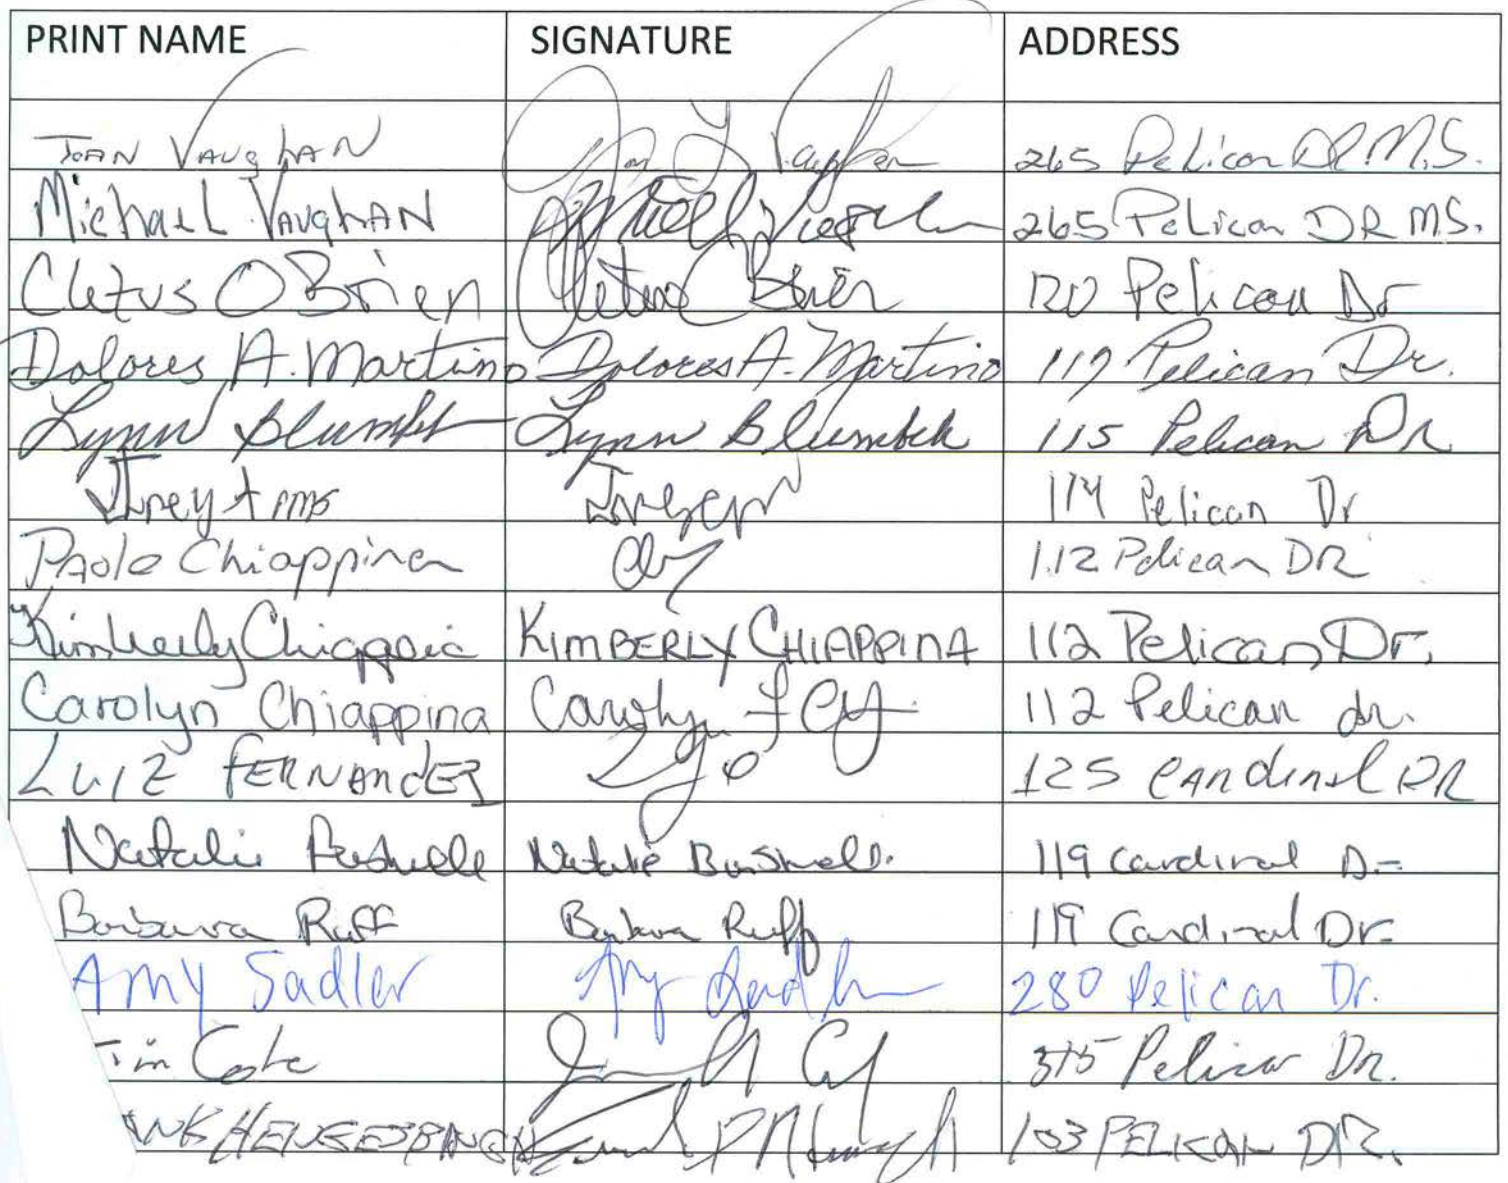 PRINT NAME SIGNATURE ADDRESS
JOAN VAUghAN 265 Pelican DR M.S.
MichaeL VAUGhAN 265 Pelican DR M.S.
Cletus OBrien Cletus OBrien 120 Pelican Dr
Dolores A. Martino Dolores A. Martino 117 Pelican Dr.
Lynn Lynn 115 Pelican DR
114 Pelican Dr
PAolo Chiappina 112 Pelican DR
Kimberly Chiappina KIMBERLY CHIAPPINA 112 Pelican Dr.
Carolyn Chiappina Carolyn 112 Pelican dr.
LuIZ FERNANdEZ 125 CARdinal DR
Natalie Natalie 119 Cardinal Dr
Barbara Ruff Barbara Ruff 119 Cardinal Dr
Amy Sadler Amy Sadler 280 Pelican Dr.
Pelican Dr.
103 PELICAN DR.